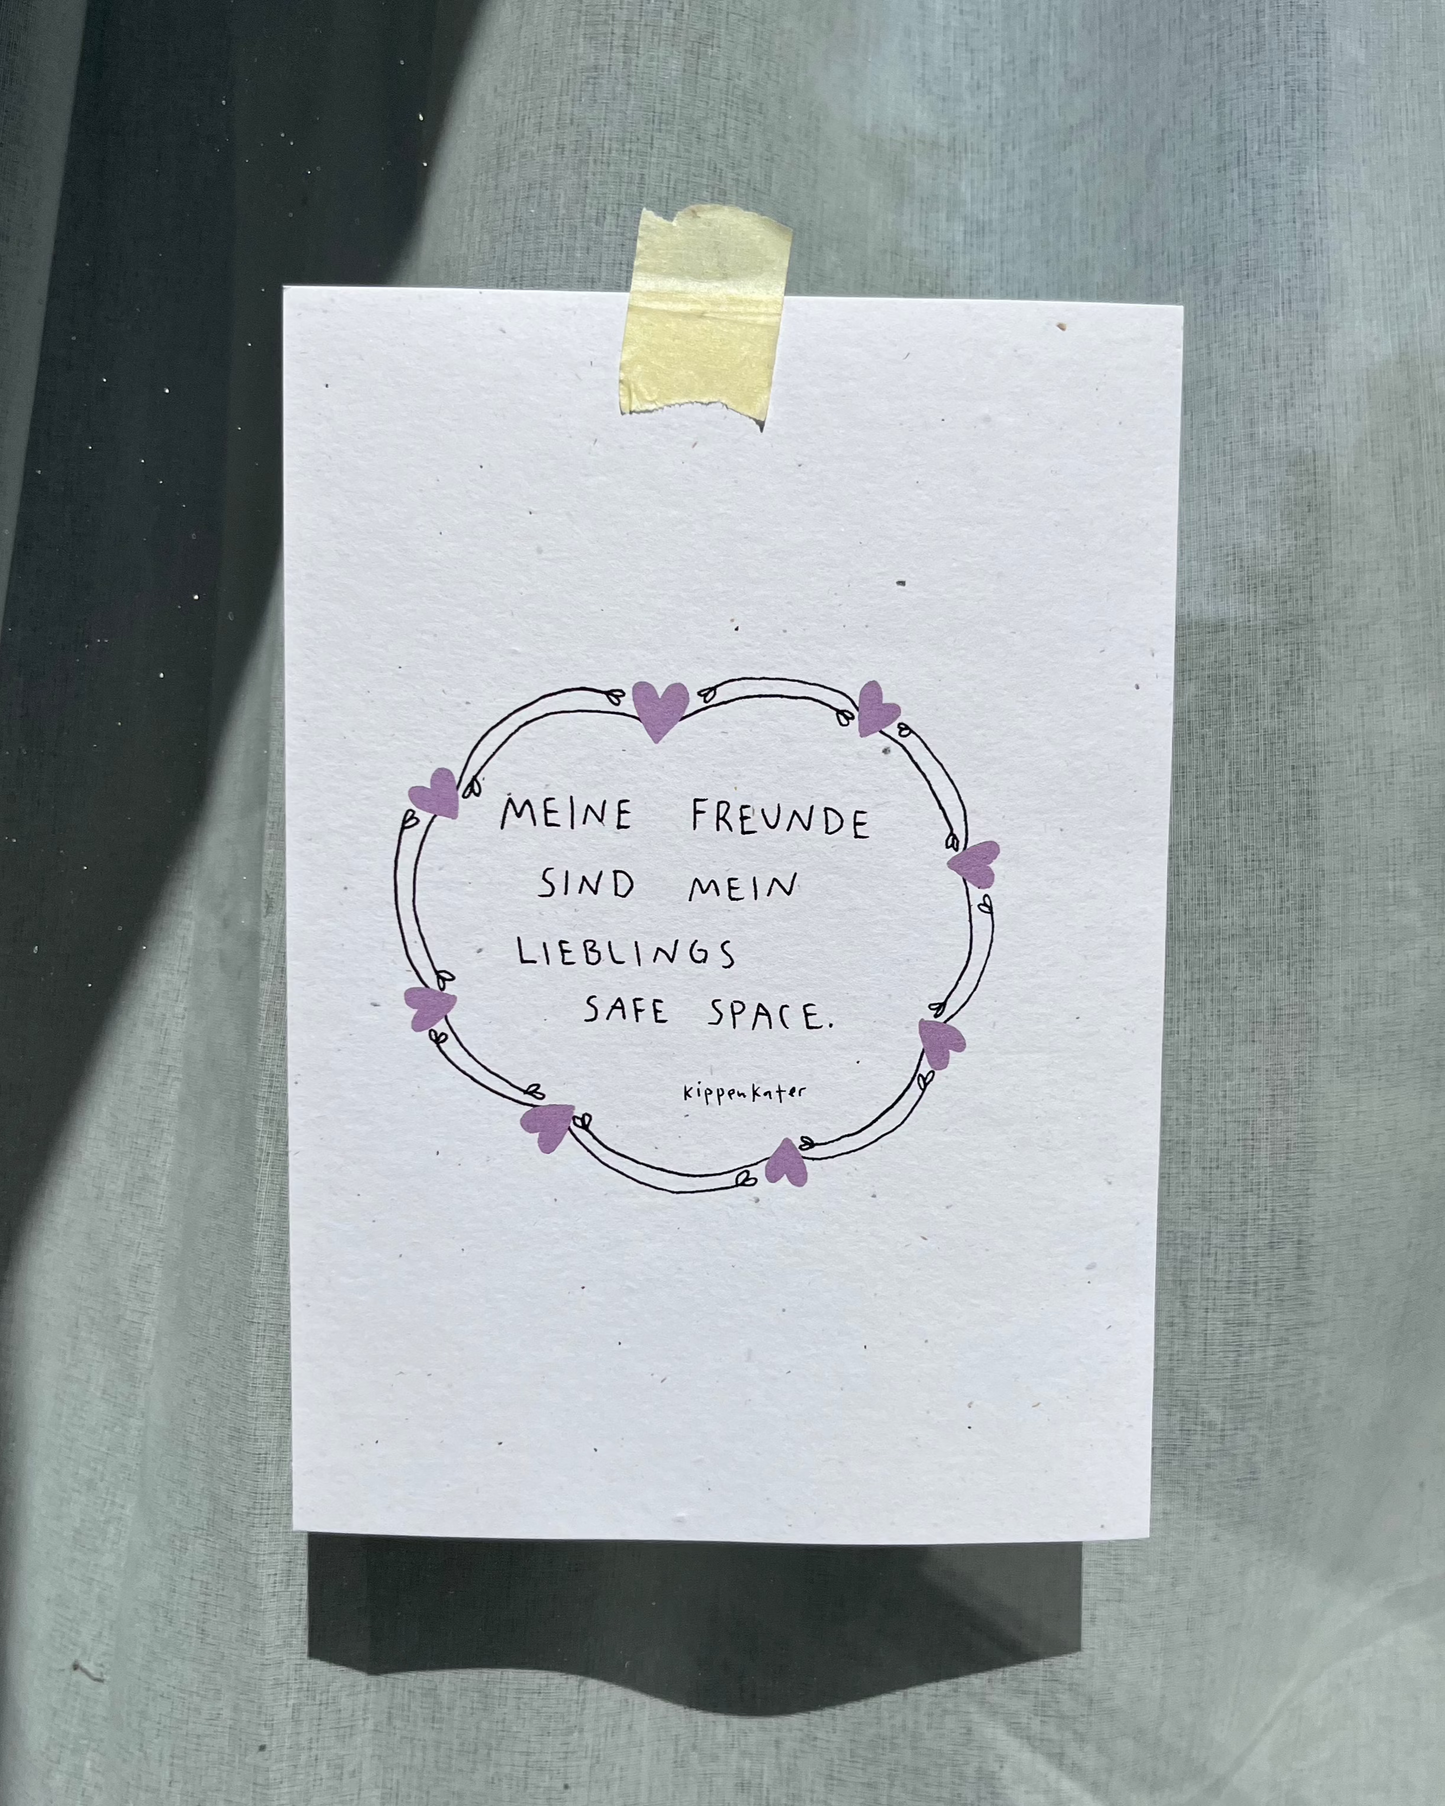 MEINE FREUNDE
SIND MEIN
LIEBLINGS
SAFE SPACE.
kippenkater